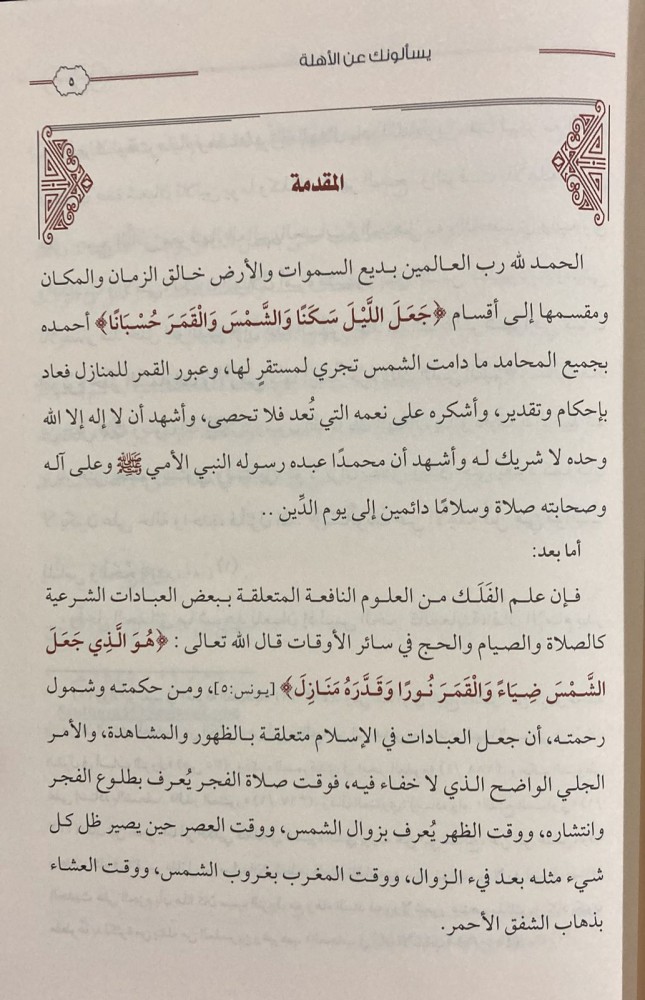 يسألونك عن الأهلة
٥
المقدمة
الحمد لله رب العالمين بديع السموات والأرض خالق الزمان والمكان
ومقسمها إلى أقسام ﴿جَعَلَ اللَّيْلَ سَكَنًا وَالشَّمْسَ وَالْقَمَرَ حُسْبَانًا﴾ أحمده
بجميع المحامد ما دامت الشمس تجري لمستقرٍ لها، وعبور القمر للمنازل فعاد
بإحكام وتقدير، وأشكره على نعمه التي تُعد فلا تحصى، وأشهد أن لا إله إلا الله
وحده لا شريك له وأشهد أن محمدًا عبده رسوله النبي الأمي ﷺ وعلى آله
وصحابته صلاة وسلامًا دائمين إلى يوم الدِّين ..
أما بعد:
فإن علم الفَلَك من العلوم النافعة المتعلقة ببعض العبادات الشرعية
كالصلاة والصيام والحج في سائر الأوقات قال الله تعالى : ﴿هُوَ الَّذِي جَعَلَ
الشَّمْسَ ضِيَاءً وَالْقَمَرَ نُورًا وَقَدَّرَهُ مَنَازِلَ﴾ [يونس:٥]، ومن حكمته وشمول
رحمته، أن جعل العبادات في الإسلام متعلقة بالظهور والمشاهدة، والأمر
الجلي الواضح الذي لا خفاء فيه، فوقت صلاة الفجر يُعرف بطلوع الفجر
وانتشاره، ووقت الظهر يُعرف بزوال الشمس، ووقت العصر حين يصير ظل كل
شيء مثله بعد فيء الزوال، ووقت المغرب بغروب الشمس، ووقت العشاء
بذهاب الشفق الأحمر.